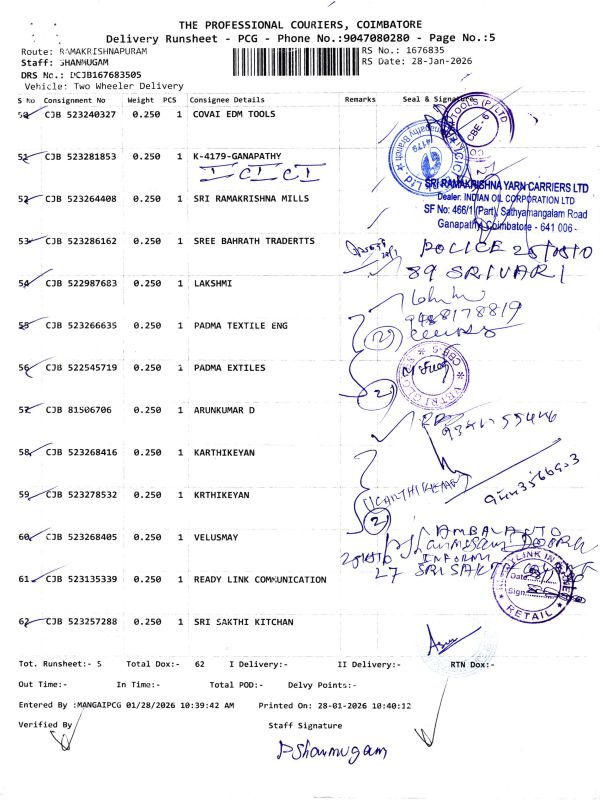 THE PROFESSIONAL COURIERS, COIMBATORE
Delivery Runsheet - PCG - Phone No.:9047080280 - Page No.:5
Route: RAMAKRISHNAPURAM
RS No.: 1676835
Staff: SHANMUGAM
RS Date: 28-Jan-2026
DRS No.: DCJB167683505
Vehicle: Two Wheeler Delivery
S No Consignment No Weight PCS Consignee Details Remarks Seal & Signature
50 CJB 523240327 0.250 1 COVAI EDM TOOLS
51 CJB 523281853 0.250 1 K-4179-GANAPATHY
ICICI
52 CJB 523264408 0.250 1 SRI RAMAKRISHNA MILLS
SRI RAMAKRISHNA YARN CARRIERS LTD
Dealer: INDIAN OIL CORPORATION LTD
SF No: 466/1 (Part), Sathyamangalam Road
Ganapathy, Coimbatore - 641 006
53 CJB 523286162 0.250 1 SREE BAHRATH TRADERTTS
POLICE
89 SRIVARI
54 CJB 522987683 0.250 1 LAKSHMI
9488178819
55 CJB 523266635 0.250 1 PADMA TEXTILE ENG
56 CJB 522545719 0.250 1 PADMA EXTILES
57 CJB 81506706 0.250 1 ARUNKUMAR D
58 CJB 523268416 0.250 1 KARTHIKEYAN
59 CJB 523278532 0.250 1 KRTHIKEYAN
60 CJB 523268405 0.250 1 VELUSMAY
61 CJB 523135339 0.250 1 READY LINK COMMUNICATION
27 SRI SAKTHI
Date
Sign
RETAIL
62 CJB 523257288 0.250 1 SRI SAKTHI KITCHAN
Tot. Runsheet:- 5 Total Dox:- 62 I Delivery:- II Delivery:- RTN Dox:-
Out Time:- In Time:- Total POD:- Delvy Points:-
Entered By :MANGAIPCG 01/28/2026 10:39:42 AM Printed On: 28-01-2026 10:40:12
Verified By Staff Signature
P Shanmugam